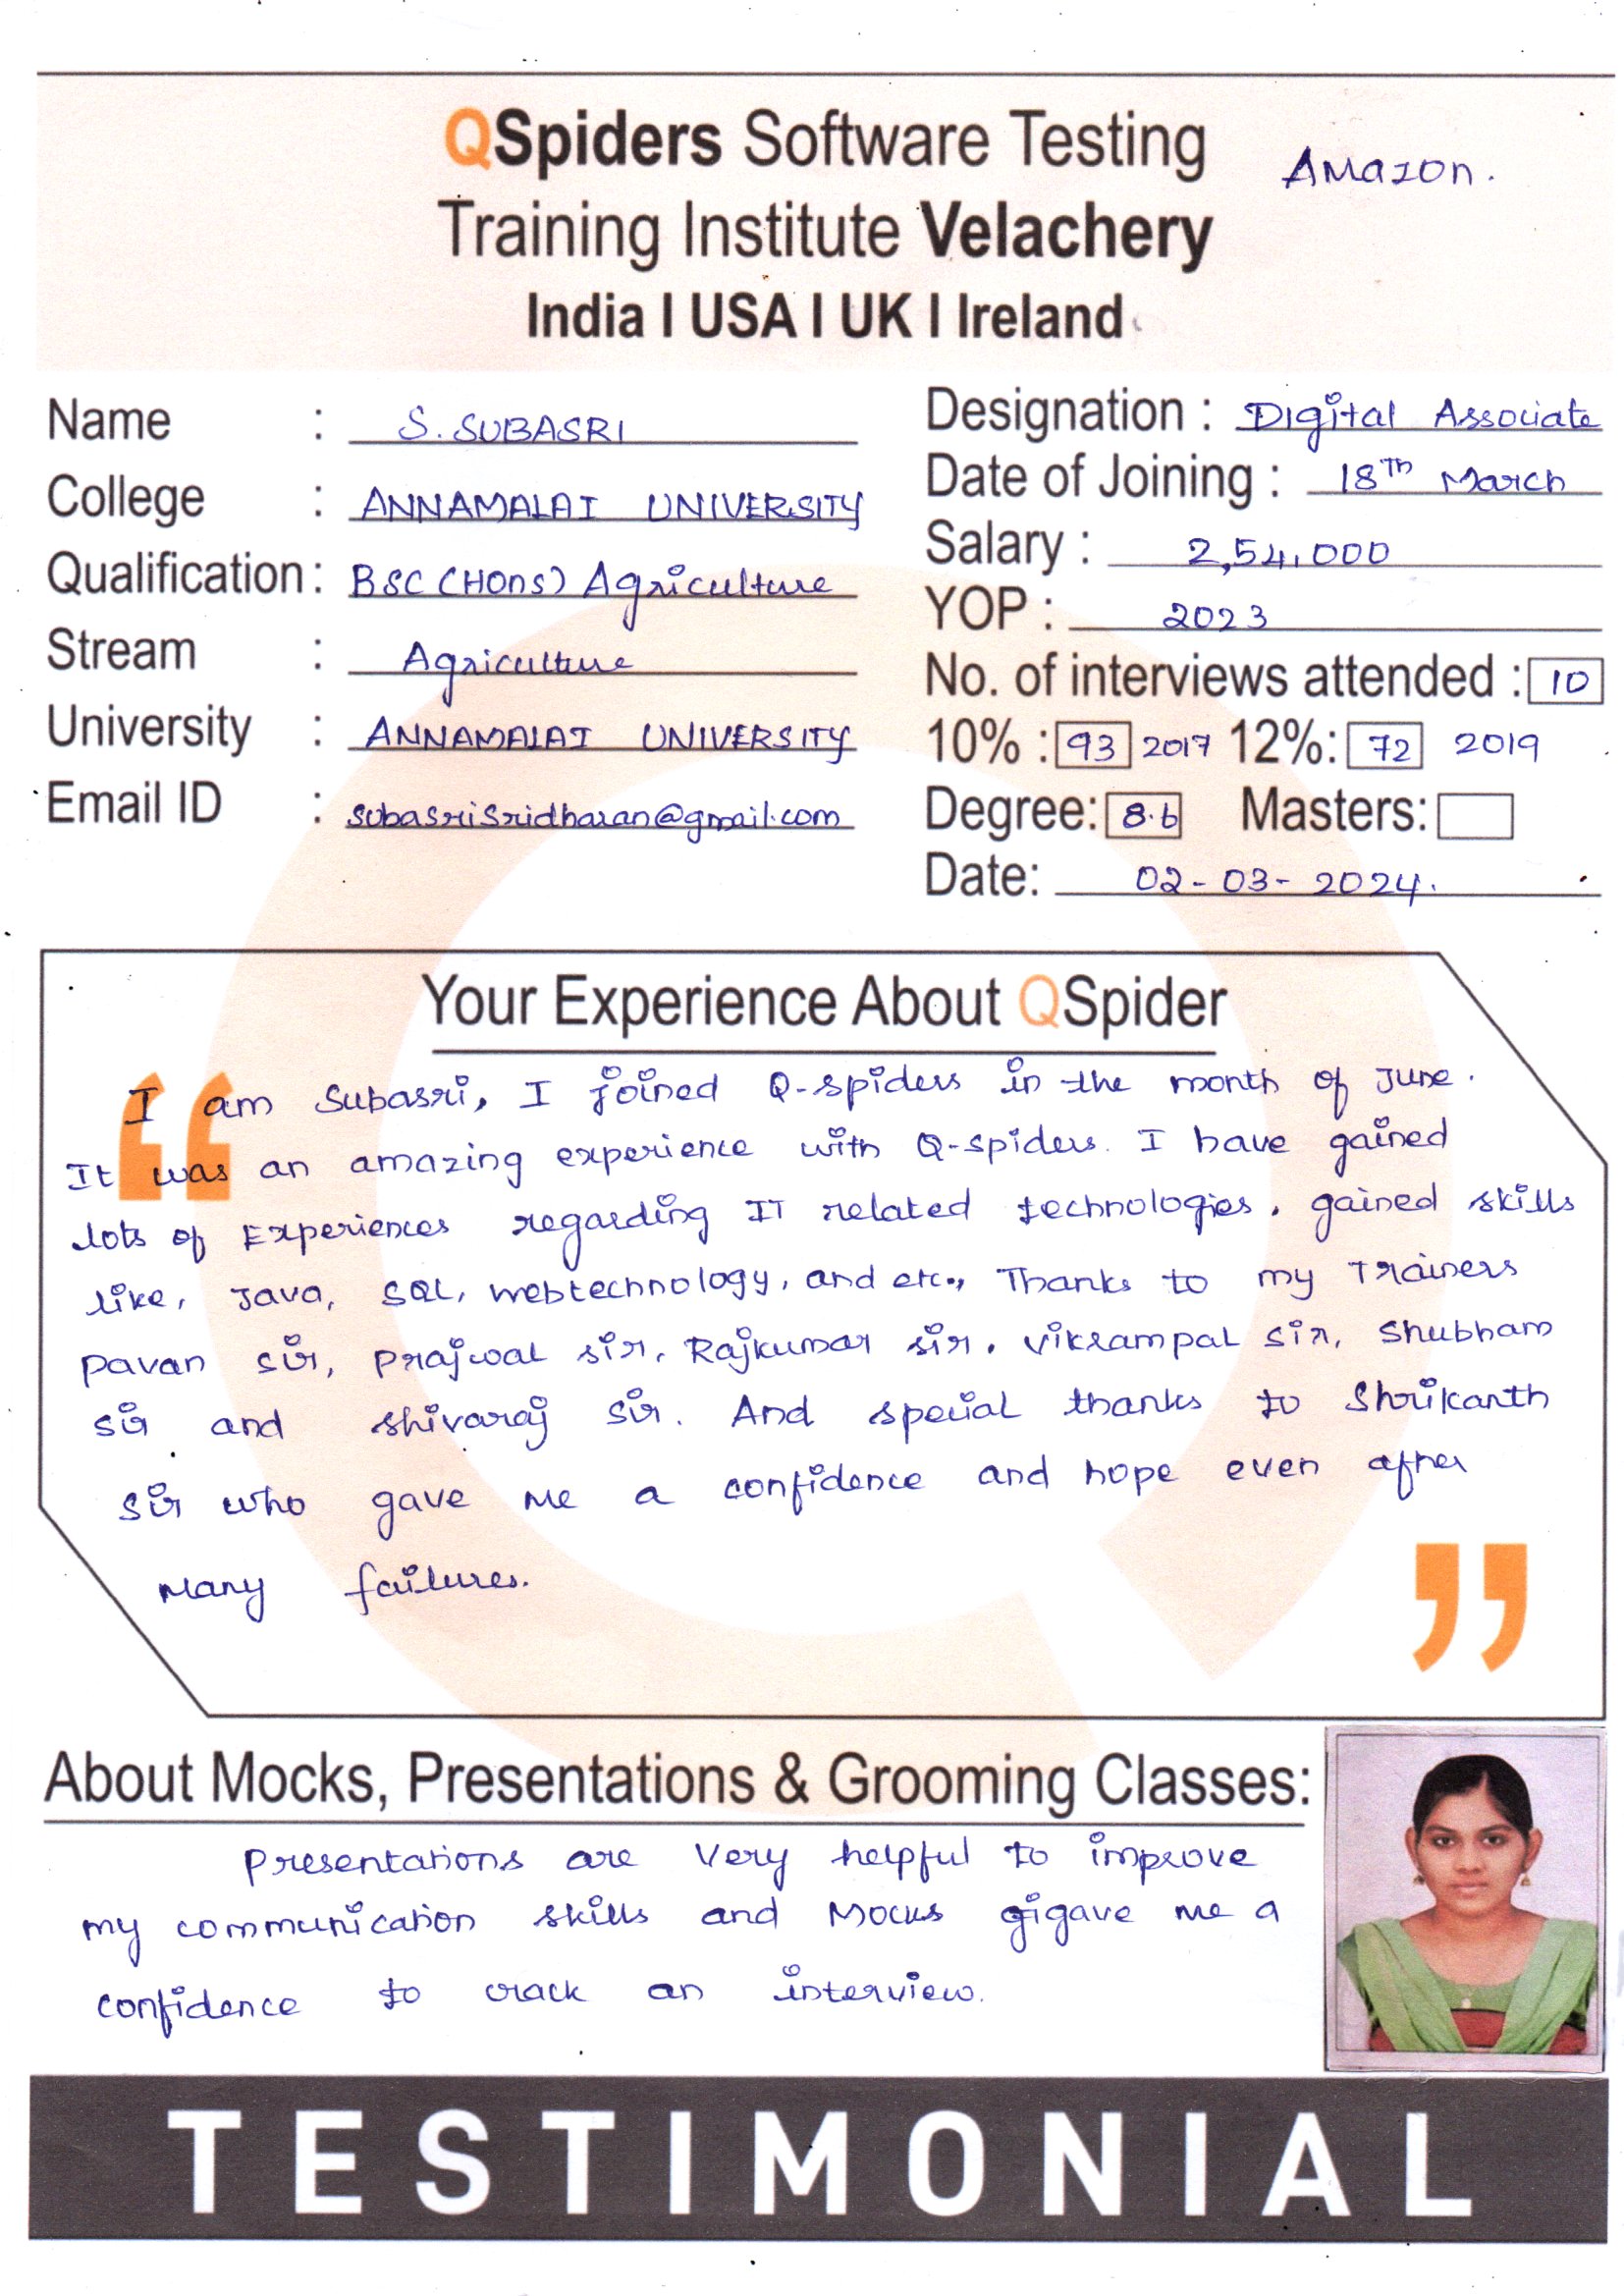 QSpiders Software Testing
Amazon.
Training Institute Velachery
India I USA I UK I Ireland
Name : S. SUBASRI
College : ANNAMALAI UNIVERSITY
Qualification : BSC (HONS) Agriculture
Stream : Agriculture
University : ANNAMALAI UNIVERSITY
Email ID : SubaSriSridharan@gmail.com
Designation : Digital Associate
Date of Joining : 18Th March
Salary : 2,54,000
YOP : 2023
No. of interviews attended : 10
10% : 93 2017 12%: 72 2019
Degree: 8.6 Masters:
Date: 02-03-2024.
Your Experience About QSpider
“ I am Subasri, I joined Q-spiders in the month of June.
It was an amazing experience with Q-spiders. I have gained
lots of Experiences regarding IT related technologies, gained skills
like, Java, SQL, webtechnology, and etc., Thanks to my Trainers
Pavan sir, Prajwal sir, Rajkumar sir, Vikrampal sir, Shubham
sir and shivaraj sir. And special thanks to Shrikanth
sir who gave me a confidence and hope even after
many failures. ”
About Mocks, Presentations & Grooming Classes:
Presentations are very helpful to improve
my communication skills and Mocks gigave me a
confidence to crack an interview.
TESTIMONIAL